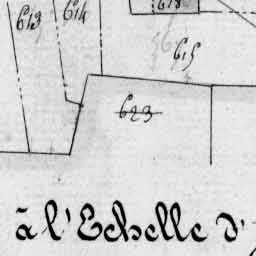 613 614 618
615
623
à l'Echelle d'